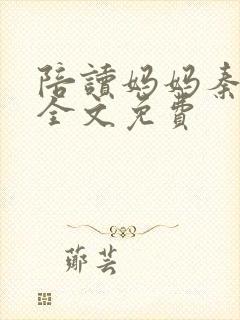 陪讀妈妈秦
全文免費
鄭芸